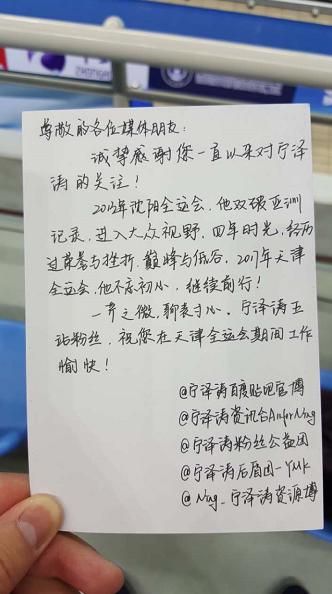 尊敬的各位媒体朋友：
诚挚感谢您一直以来对宁泽
涛的关注！
2013年沈阳全运会，他双破亚洲
记录，进入大众视野，四年时光，经历
过荣誉与挫折，巅峰与低谷，2017年天津
全运会，他不忘初心，继续前行！
一芹之微，聊表寸心。宁泽涛五
站粉丝，祝您在天津全运会期间工作
愉快！
@宁泽涛百度贴吧官博
@宁泽涛资讯台AnforNing
@宁泽涛粉丝公益团
@宁泽涛后盾团-YMK
@Ning_宁泽涛资源博